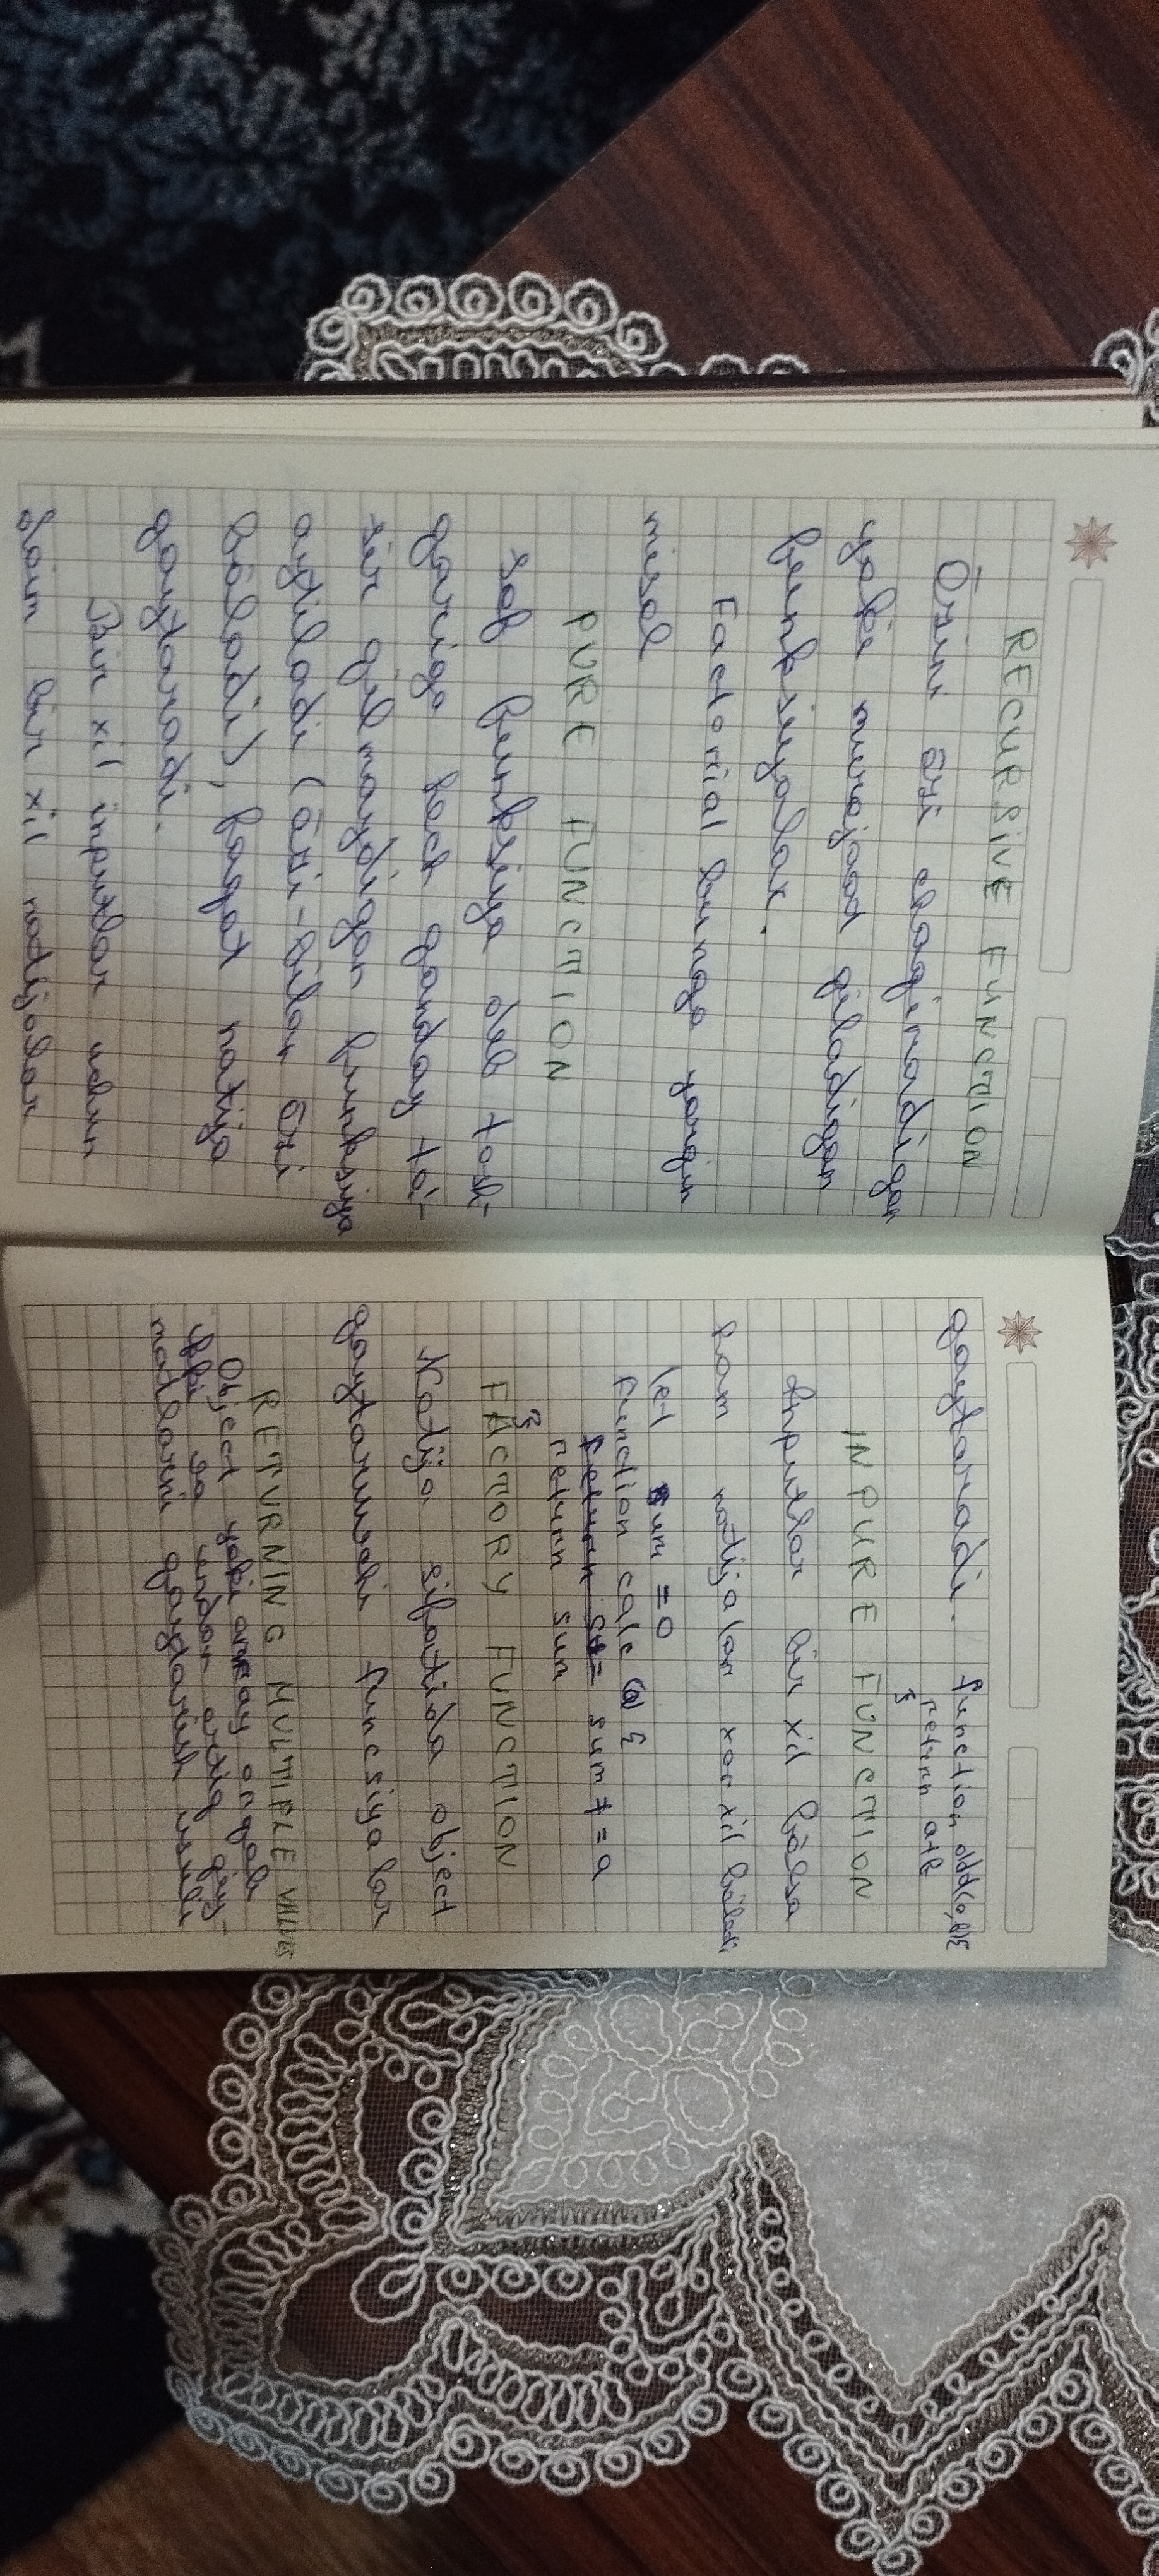 RECURSIVE FUNCTION
Õzini õzi chaqiradigan
yoki murojaat qiladigan
funksiyalar.
Factorial bunga yorqin
misol
PURE FUNCTION
Sof funksiya deb tash-
qariga hech qanday ta-
sir qilmaydigan funksiya
aytiladi (õzi-bilan õzi
bõladi), faqat natija
qaytaradi.
Bir xil inputlar uchun
ham bir xil natijalar
qaytaradi. function add(a,b){
return a+b
}
INPURE FUNCTION
Inputlar bir xil bõlsa
ham natijalar xar xil bõladi
let sum = 0
function calc (a) {
sum += a
return sum
}
FACTORY FUNCTION
Natija sifatida object
qaytaruvchi funcsiyalar
RETURNING MULTIPLE VALUES
Object yoki array orqali
ikki va undan ortiq qiy-
matlarni qaytarish usuli